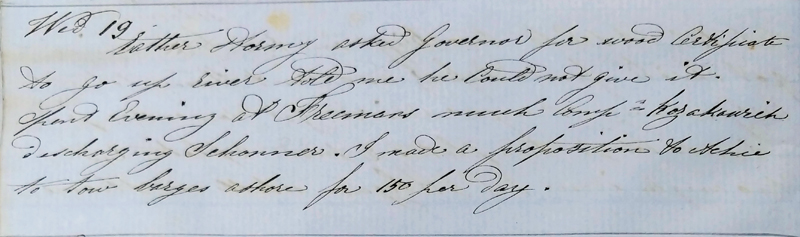 Wed. 19
Eather Stormy asked Governor for wood Certificate
to go up river told me he Could not give it.
Spend Evening at Freemans much Compⁿ Kozakawich
discharging Schonner. I made a proposition to
to tow barges ashore for 150 per day.